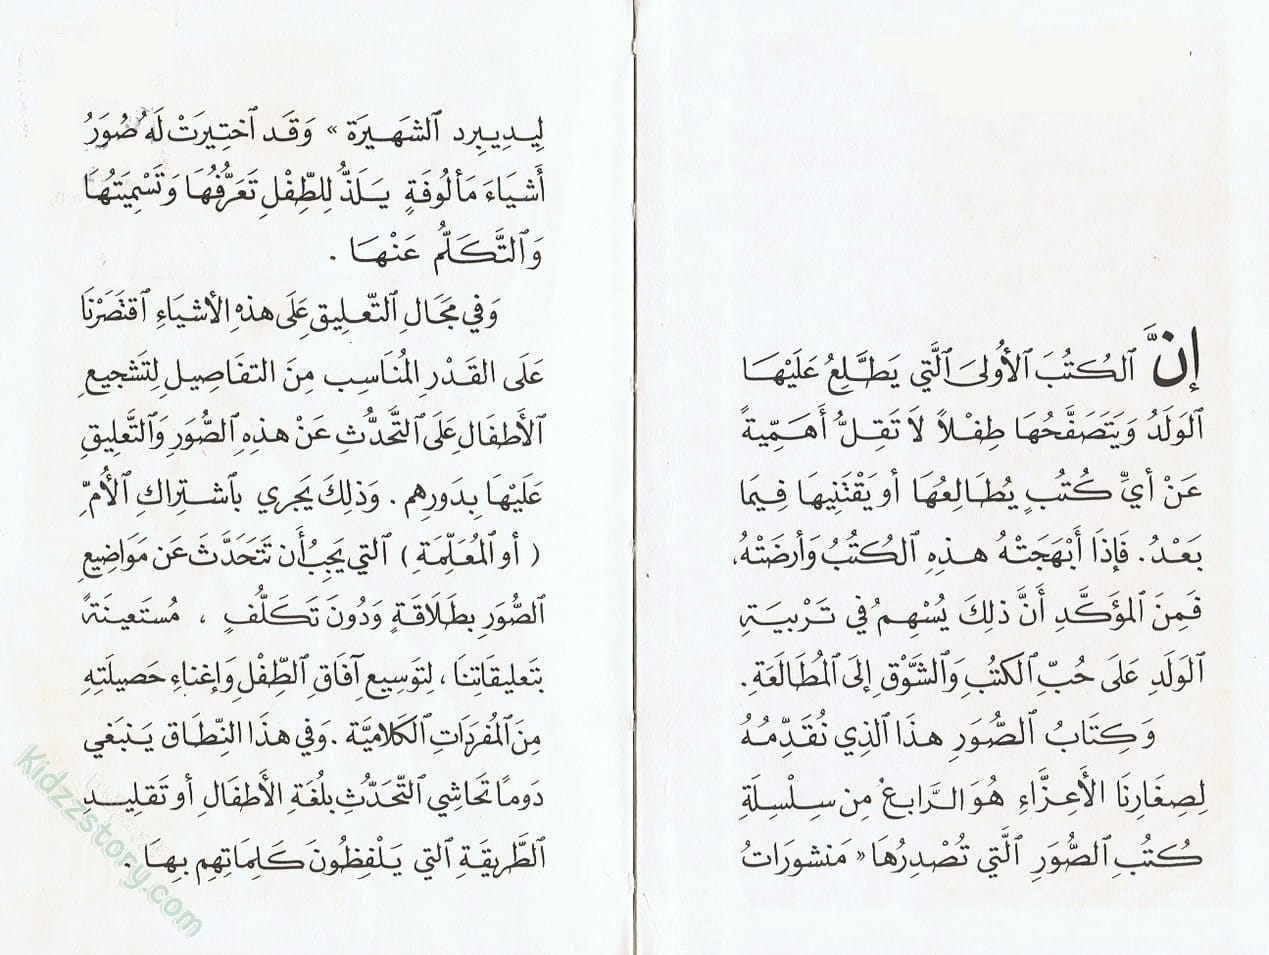 إنَّ ٱلكُتُبَ ٱلأُولىَ ٱلَّتي يَطَّلِعُ عَلَيْهَا
ٱلوَلَدُ وَيَتَصَفَّحُهَا طِفْلاً لاَ تَقِلُّ أَهَمِّيةً
عَنْ أيِّ كُتُبٍ يُطَالِعُهَا أو يَقْتَنِيهَا فِيمَا
بَعْدُ. فَإِذَا أَبْهَجَتْهُ هذِهِ ٱلكُتُبُ وَأرضَتْهُ،
فَمِنَ ٱلمؤَكَّدِ أَنَّ ذلِكَ يُسْهِمُ في تَرْبيَةِ
ٱلوَلَدِ عَلَى حُبِّ ٱلكتُبِ وَٱلشَّوْقِ إلىَ ٱلمُطَالَعَةِ.
وَكِتَابُ ٱلصُّوَرِ هذَا ٱلذِي نُقَدِّمُهُ
لِصِغَارِنَا ٱلأَعِزَّاءِ هُوَ ٱلرَّابعُ مِن سِلْسِلَةِ
كُتُبِ ٱلصُّوَرِ ٱلَّتي تُصْدِرُهَا « مَنشورَاتُ
لِيدِيبِرد ٱلشَهِيرَة » وَقَد ٱختِيرَتْ لَهُ صُوَرُ
أَشيَاءَ مَألُوفَةٍ يَلَذُّ لِلطِّفْلِ تَعَرُّفُهَا وَتَسْمِيَتُهَا
وَٱلتَّكَلُّمُ عَنْهَا .
وَفي مَجَالِ ٱلتّعلِيق عَلَى هذهِ الأشيَاءِ ٱقتَصَرْنَا
عَلَى القَدْرِ المُنَاسِب مِنَ التفَاصِيلِ لِتَشجيعِ
ٱلأَطفَالِ عَلَى ٱلتَّحَدُّثِ عَنْ هذِهِ ٱلصُّوَرِ وَٱلتَّعلِيقِ
عَلَيْهَا بِدَورِهِم . وَذلِكَ يَجري بٱشتِرَاكِ ٱلأُمِّ
( أو ٱلمُعَلِّمَةِ ) ٱلتي يَجِبُ أَن تَتَحَدَّثَ عَن مَوَاضِيعِ
ٱلصُّوَرِ بِطَلَاقَةٍ وَدُونَ تَكَلُّفٍ ، مُستَعِينَةً
بتَعليقَاتِنَا ، لِتَوسِيعِ آفَاقِ ٱلطِّفْلِ وَإغنَاءِ حَصيلَتِهِ
مِنَ ٱلمُفرَدَاتِ ٱلكَلاميَّة . وَفي هذَا النِّطَاق يَنبَغي
دَومًا تحَاشِي ٱلتّحَدُّثِ بِلُغَةِ الأَطفَالِ أو تَقلِيدِ
ٱلطَّريقَةِ ٱلتي يَلْفِظُونَ كَلِمَاتِهِم بِهَا .
Kidzzstory.com